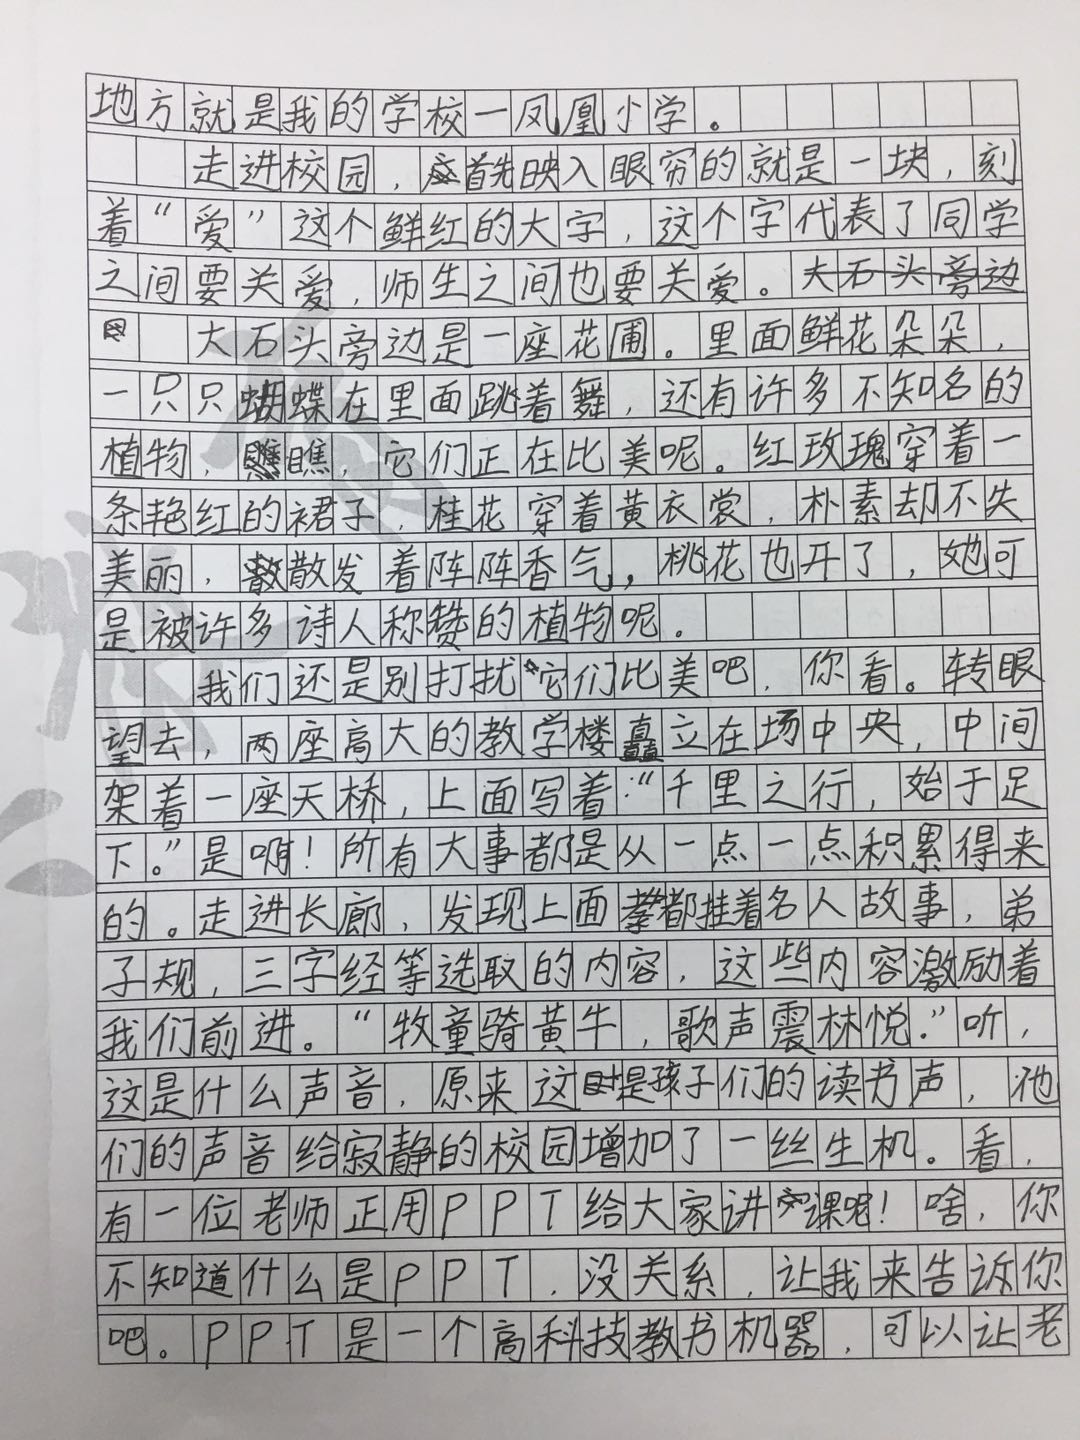 地方就是我的学校一凤凰小学。
走进校园，首先映入眼穷的就是一块，刻
着“爱”这个鲜红的大字，这个字代表了同学
之间要关爱，师生之间也要关爱。大石头旁边
大石头旁边是一座花圃。里面鲜花朵朵，
一只只蝴蝶在里面跳着舞，还有许多不知名的
植物，瞧瞧，它们正在比美呢。红玫瑰穿着一
条艳红的裙子，桂花穿着黄衣裳，朴素却不失
美丽，散发着阵阵香气，桃花也开了，她可
是被许多诗人称赞的植物呢。
我们还是别打扰它们比美吧，你看。转眼
望去，两座高大的教学楼矗立在场中央，中间
架着一座天桥，上面写着：“千里之行，始于足
下。”是啊！所有大事都是从一点一点积累得来
的。走进长廊，发现上面都挂着名人故事，弟
子规，三字经等选取的内容，这些内容激励着
我们前进。“牧童骑黄牛，歌声震林悦。”听，
这是什么声音，原来这是孩子们的读书声，他
们的声音给寂静的校园增加了一丝生机。看，
有一位老师正用PPT给大家讲课呢！啥，你
不知道什么是PPT，没关系，让我来告诉你
吧。PPT是一个高科技教书机器，可以让老